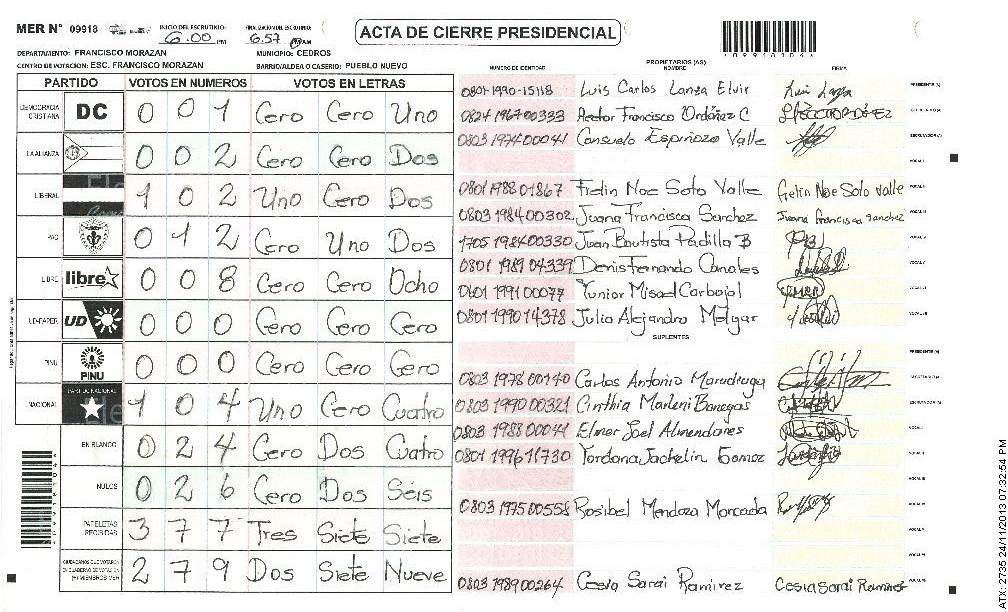 MER N° 09918
INICIO DEL ESCRUTINIO: 6:00 PM
FINALIZACION DEL ESCRUTINIO: 6:57 PM AM
ACTA DE CIERRE PRESIDENCIAL
DEPARTAMENTO: FRANCISCO MORAZAN MUNICIPIO: CEDROS
CENTRO DE VOTACION: ESC. FRANCISCO MORAZAN BARRIO/ALDEA O CASERIO: PUEBLO NUEVO
PARTIDO VOTOS EN NUMEROS VOTOS EN LETRAS
DEMOCRACIA CRISTIANA DC 0 0 1 Cero Cero Uno
LA ALIANZA 0 0 2 Cero Cero Dos
LIBERAL 1 0 2 Uno Cero Dos
PAC 0 1 2 Cero Uno Dos
LIBRE libre 0 0 8 Cero Cero Ocho
UD-FAPER UD 0 0 0 Cero Cero Cero
PINU PINU 0 0 0 Cero Cero Cero
NACIONAL PARTIDO NACIONAL 1 0 4 Uno Cero Cuatro
EN BLANCO 0 2 4 Cero Dos Cuatro
NULOS 0 2 6 Cero Dos Séis
PAPELETAS RECIBIDAS 3 7 7 Tres Siete Siete
CIUDADANOS QUE VOTARON EN CUADERNO DE VOTACION (+) MIEMBROS MER 2 7 9 Dos Siete Nueve
NUMERO DE IDENTIDAD PROPIETARIOS (AS) NOMBRE FIRMA
0801-1990-15118 Luis Carlos Lanza Elvir Luis Lanza PRESIDENTE (A)
0824 1967 00333 Hector Francisco Ordóñez C SECRETARIO (A)
0803 1974 00041 Consuelo Espinoza Valle ESCRUTADOR (A)
VOCAL I
0801 1988 01867 Felin Noe Soto Valle Felin Noe Soto Valle VOCAL II
0803 1984 00302 Juana Francisca Sanchez Juana Francisca Sanchez VOCAL III
1705 1984 00330 Juan Bautista Padilla B
0801 1989 04339 Denis Fernando Canales
0601 1991 00077 Yunior Misael Carbajal
0801 1990 14378 Julio Alejandro Melgar
SUPLENTES
PRESIDENTE (A)
0803 1978 00140 Carlos Antonio Maradiaga SECRETARIO (A)
0803 1990 00321 Cinthia Marleni Banegas ESCRUTADOR (A)
0803 1988 00041 Elmer Joel Almendares VOCAL I
0801 1996 11730 Yordana Jackelin Gomez
0803 1975 00558 Rosibel Mendoza Moncada
0803 1989 00264 Cesia Sarai Ramirez Cesia Sarai Ramirez
ATX: 2735 24/11/2013 07:32:54 PM